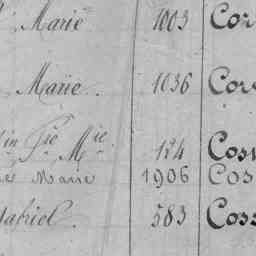 Marie 1003 Cor
Marie. 1036 Cor
in Fse Mie 124 Cos
Marie 1906 Cos
abriel. 583 Coss